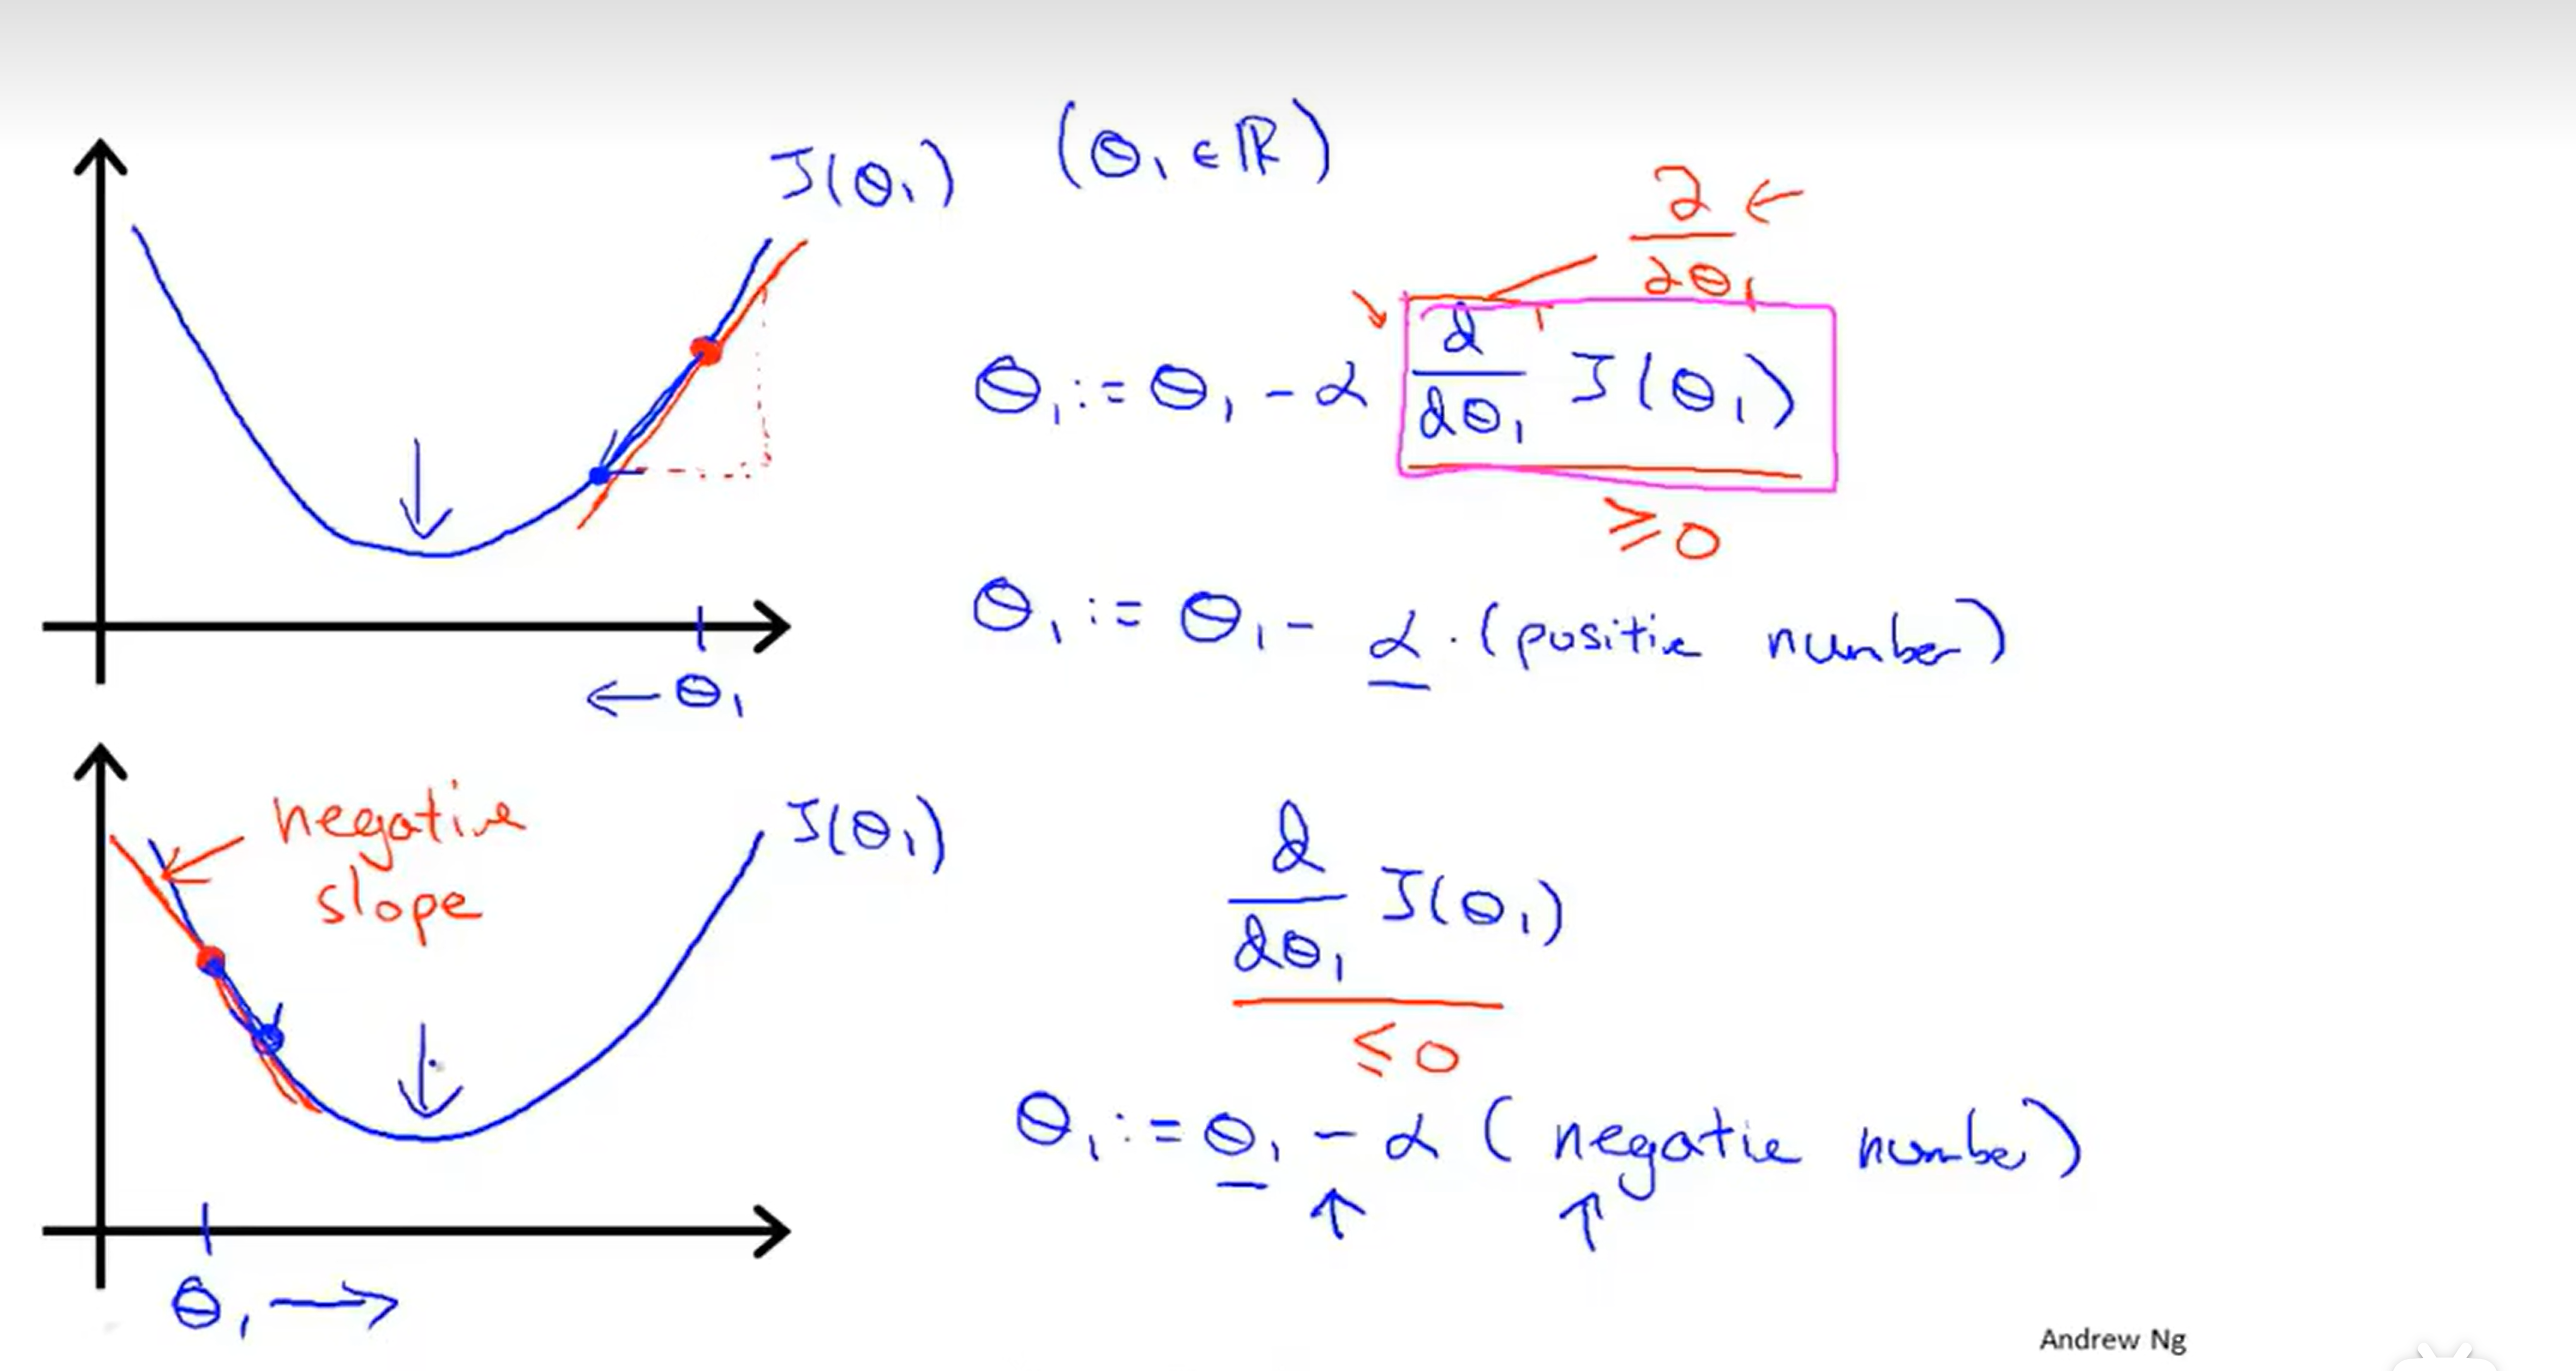 J(θ₁) (θ₁ ∈ ℝ)
∂ ←
∂θ₁
θ₁ := θ₁ - α d/dθ₁ J(θ₁)
≥ 0
θ₁ := θ₁ - α · (positive number)
← θ₁
negative
slope
J(θ₁)
d/dθ₁ J(θ₁)
≤ 0
θ₁ := θ₁ - α (negative number)
↑ ↑
θ₁ →
Andrew Ng